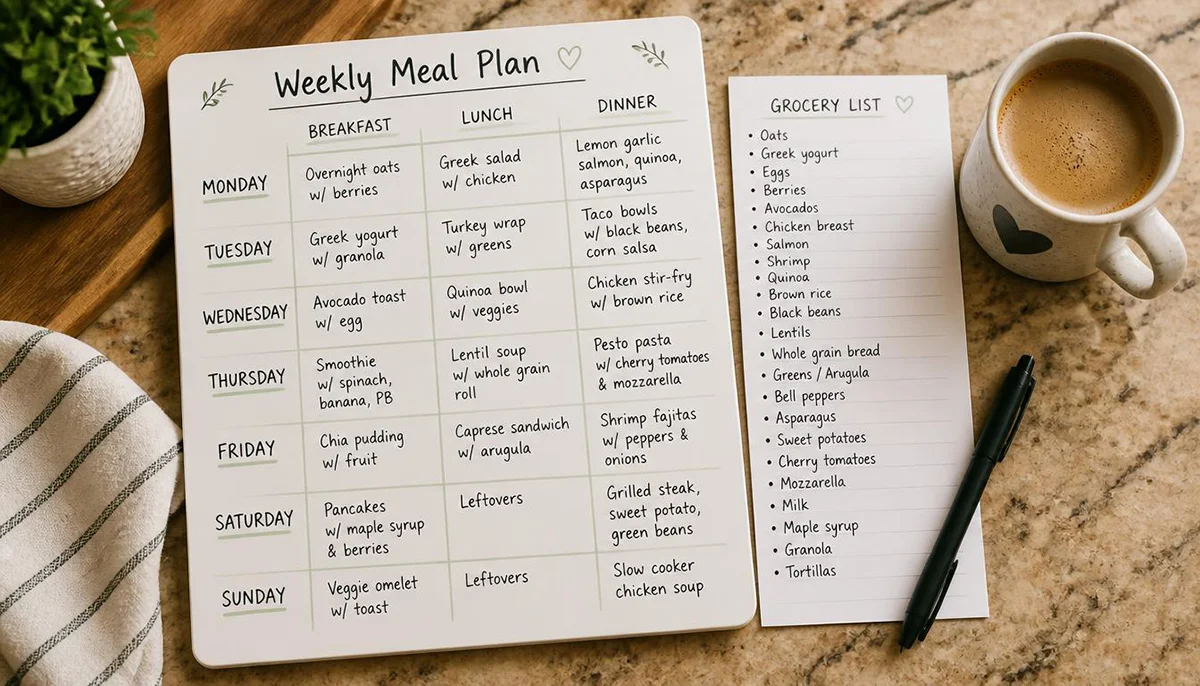 Weekly Meal Plan
BREAKFAST
LUNCH
DINNER
MONDAY
Overnight oats
w/ berries
Greek salad
w/ chicken
Lemon garlic
salmon, quinoa,
asparagus
TUESDAY
Greek yogurt
w/ granola
Turkey wrap
w/ greens
Taco bowls
w/ black beans,
corn salsa
WEDNESDAY
Avocado toast
w/ egg
Quinoa bowl
w/ veggies
Chicken stir-fry
w/ brown rice
THURSDAY
Smoothie
w/ spinach,
banana, PB
Lentil soup
w/ whole grain
roll
Pesto pasta
w/ cherry tomatoes
& mozzarella
FRIDAY
Chia pudding
w/ fruit
Caprese sandwich
w/ arugula
Shrimp fajitas
w/ peppers &
onions
SATURDAY
Pancakes
w/ maple syrup
& berries
Leftovers
Grilled steak,
sweet potato,
green beans
SUNDAY
Veggie omelet
w/ toast
Leftovers
Slow cooker
chicken soup
GROCERY LIST
• Oats
• Greek yogurt
• Eggs
• Berries
• Avocados
• Chicken breast
• Salmon
• Shrimp
• Quinoa
• Brown rice
• Black beans
• Lentils
• Whole grain bread
• Greens / Arugula
• Bell peppers
• Asparagus
• Sweet potatoes
• Cherry tomatoes
• Mozzarella
• Milk
• Maple syrup
• Granola
• Tortillas